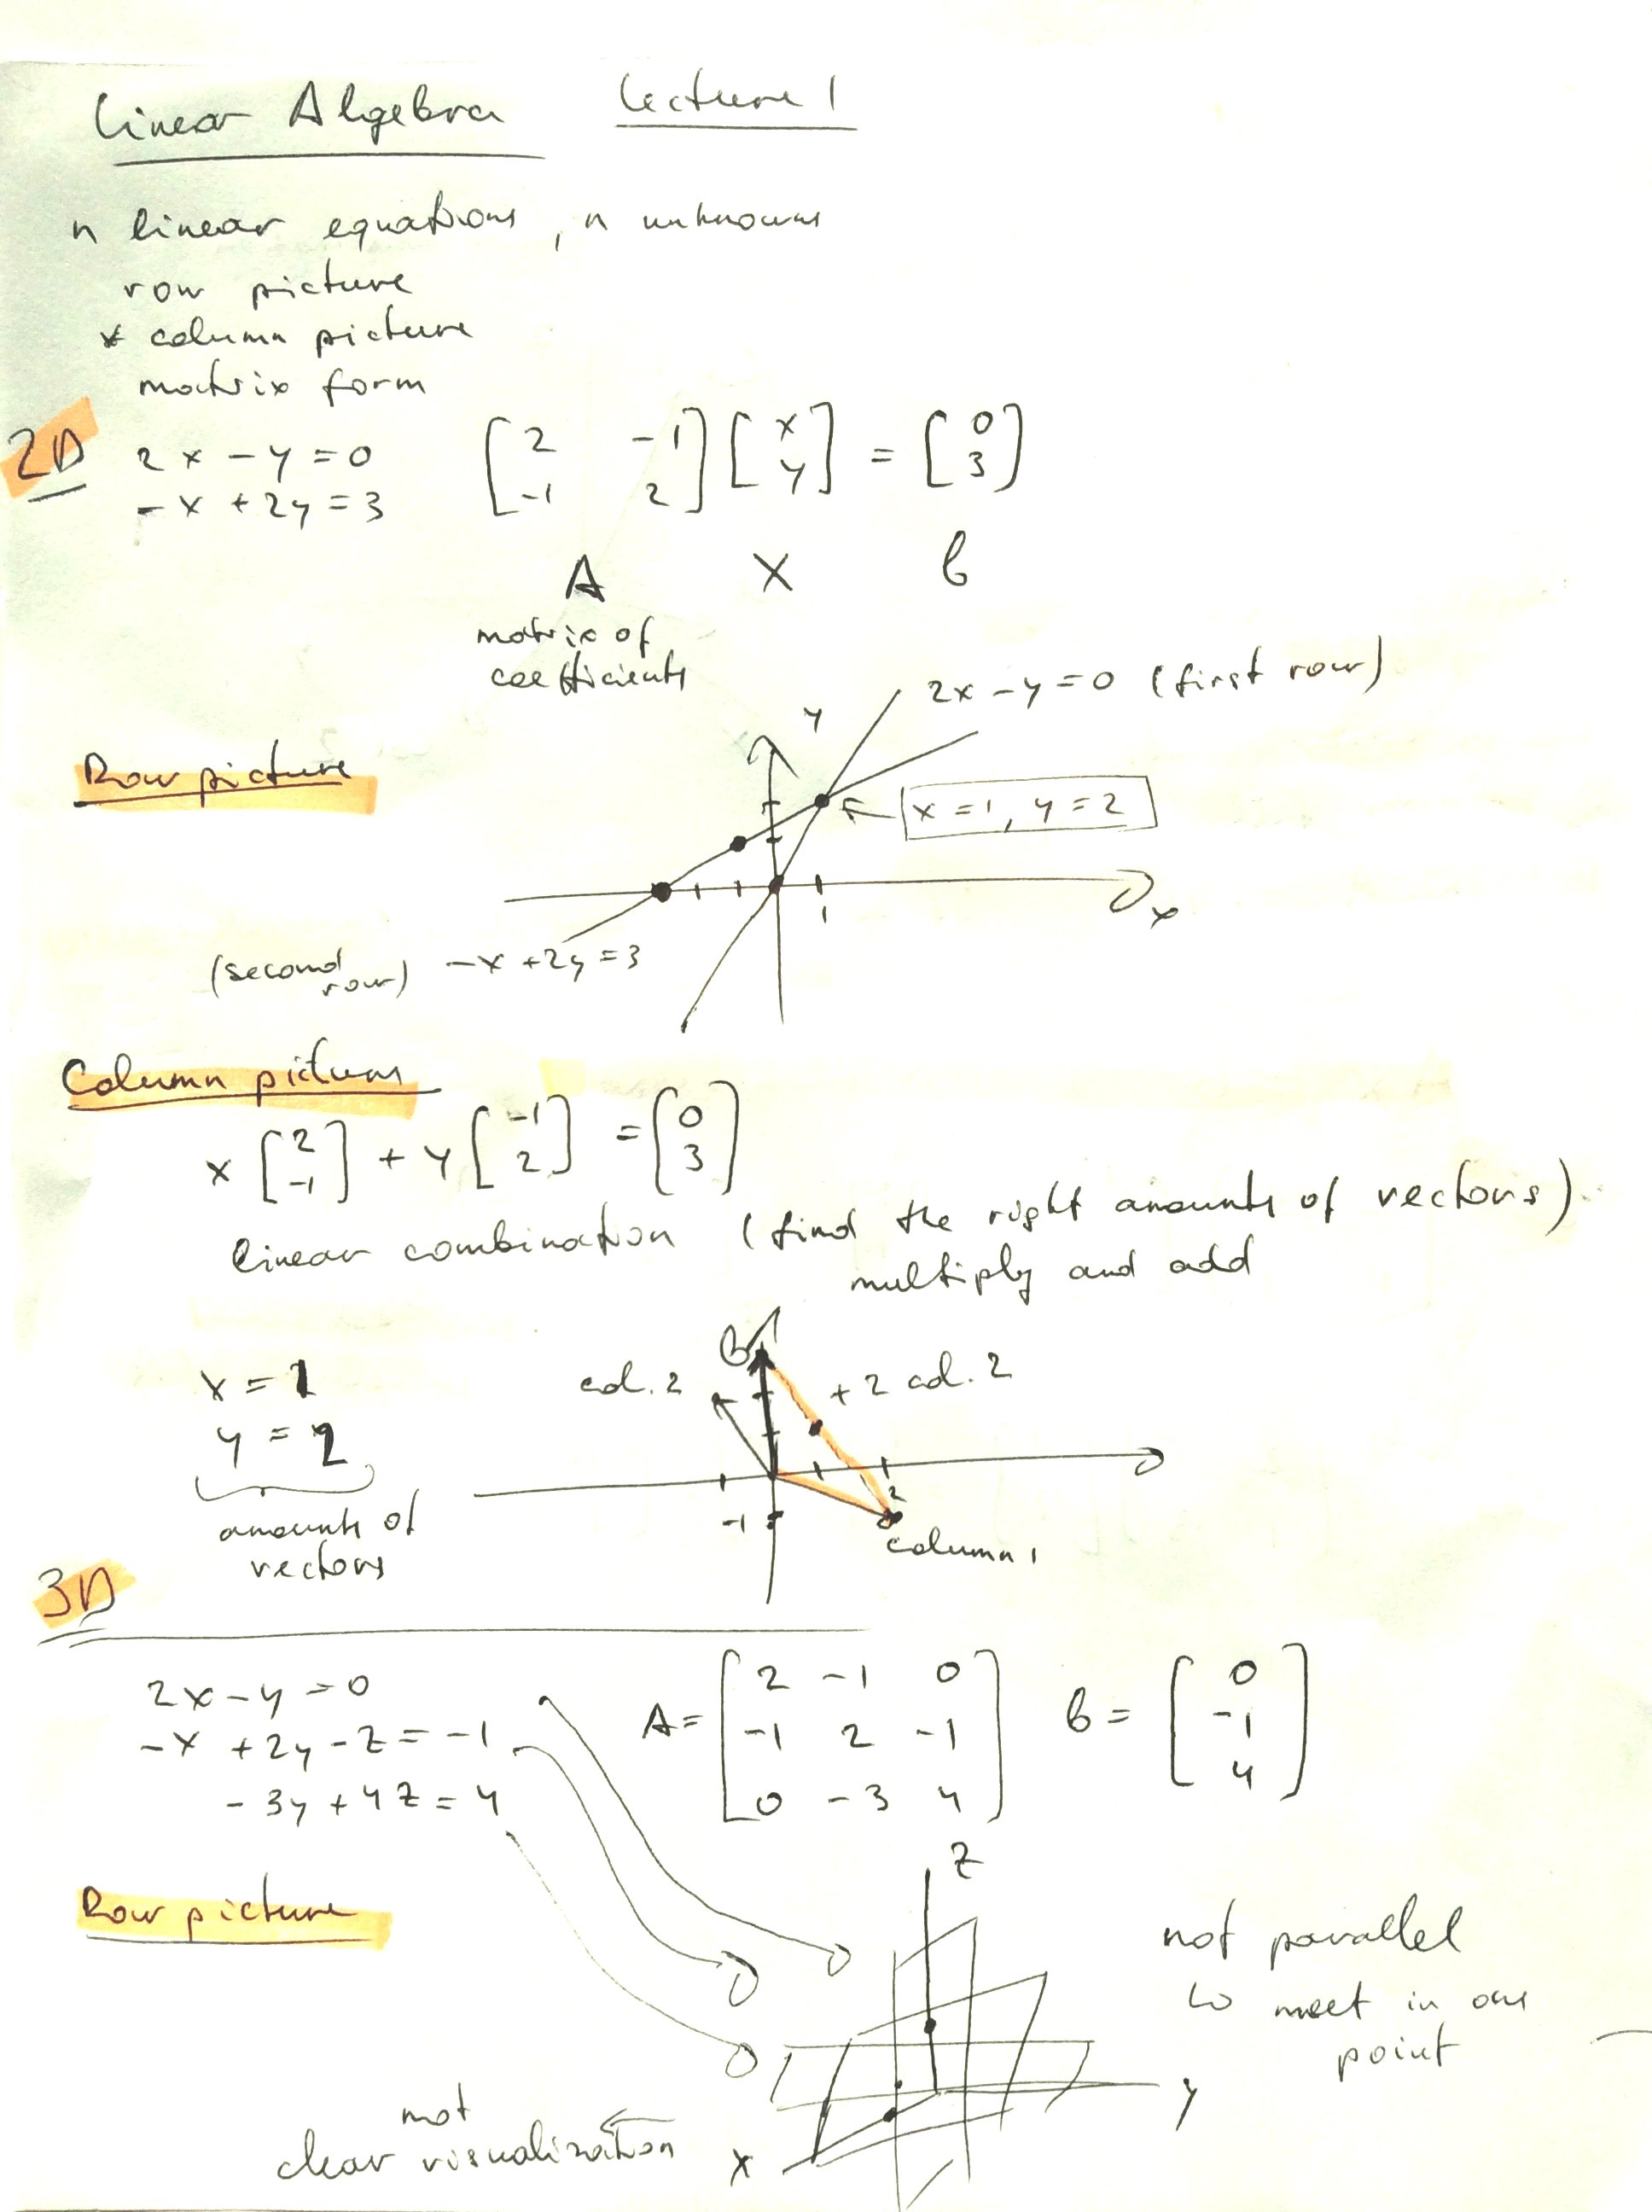 Linear Algebra Lecture 1
n linear equations, n unknowns
row picture
* column picture
matrix form
2D
2x - y = 0
-x + 2y = 3
[2 -1; -1 2] [x; y] = [0; 3]
A X b
matrix of
coefficients
2x - y = 0 (first row)
Row picture
y
x = 1, y = 2
1
x
(second row) -x + 2y = 3
Column picture
x [2; -1] + y [-1; 2] = [0; 3]
linear combination (find the right amounts of vectors)
multiply and add
x = 1
y = 2
amounts of
vectors
b
col. 2
+ 2 col. 2
2
-1
column 1
3D
2x - y = 0
-x + 2y - z = -1
-3y + 4z = 4
A = [2 -1 0; -1 2 -1; 0 -3 4]
b = [0; -1; 4]
Row picture
z
y
x
not parallel
↳ meet in one
point
not
clear visualization